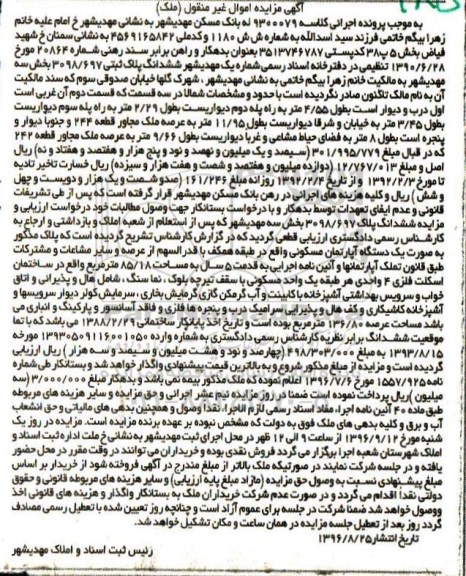 آگهی مزایده اموال غیر منقول (ملک)
به موجب پرونده اجرائی کلاسه ۹۳۰۰۰۷۹ له بانک مسکن مهدیشهر به نشانی مهدیشهر خ امام علیه خانم
زهرا بیگم خاتمی فرزند سید اسدالله به شماره ش ش 1180 و کدملی ۴۵۶۹۱۶۵۸۴۲ به نشانی سمنان خ شهید
فیاض بخش ۵ پ۳۸ کدپستی ۳۵۱۳۷۴۶۷۸۷ بعنوان بدهکار و راهن برابر سند رهنی شماره ۲۰۸۶۴ مورخ
۱۳۹۰/۶/۲۸ تنظیمی در دفترخانه اسناد رسمی شماره یک مهدیشهر ششدانگ پلاک ثبتی ۳۰۹۸/۶۹۷ بخش سه
مهدیشهر به مالکیت خانم زهرا بیگم خاتمی به نشانی مهدیشهر ، شهرک گلها خیابان صدوقی سوم که سند مالکیت
آن به نام مالک تاکنون صادر نگردیده است با حدود و مشخصات شمالا در سه قسمت که قسمت دوم آن غربی است
اول درب و دیوار است بطول ۴/۵۵ متر به راه پله دوم دیواریست بطول ۲/۲۹ متر به راه پله سوم دیواریست
بطول ۳/۴۵ متر به خیابان و شرقا دیواریست بطول ۱۱/۹۵ متر به عرصه ملک مجاور قطعه ۲۴۴ و جنوبا دیوار و
پنجره است بطول ۸ متر به فضای حیاط مشاعی و غربا دیواریست بطول ۹/۶۶ متر به عرصه ملک مجاور قطعه ۲۴۲
که در قبال مبلغ ۳۰۱/۹۹۵/۷۷۹ (سیصد و یک میلیون و نهصد و نود و پنج هزار و هفتصد و هفتاد و نه) ریال
اصل و مبلغ ۱۲/۷۶۷/۰۱۳ (دوازده میلیون و هفتصد و شصت و هفت هزار و سیزده) ریال خسارت تاخیر تادیه
تا مورخ ۱۳۹۲/۲/۳ و از تاریخ ۱۳۹۲/۲/۴ روزانه مبلغ ۱۶۱/۲۴۶ (صدو شصت و یک هزار و دویست و چهل
و شش ) ریال و کلیه هزینه های اجرائی در رهن بانک مسکن مهدیشهر قرار گرفته است که پس از طی تشریفات
قانونی و عدم ایفای تعهدات توسط بدهکار و با درخواست بستانکار جهت وصول مطالبات خود درخواست ارزیابی و
مزایده ششدانگ پلاک ۳۰۹۸/۶۹۷ بخش سه مهدیشهر که پس از استعلام از شعبه املاک و بازداشتی و ارجاع به
کارشناس رسمی دادگستری ارزیابی قطعی گردید که در گزارش کارشناس تشریح گردیده است که پلاک مذکور
به صورت یک دستگاه آپارتمان مسکونی واقع در طبقه همکف با قدر السهم از عرصه و سایر مشاعات و مشترکات
طبق قانون تملک آپارتمانها و آئین نامه اجرایی به قدمت ۵ سال به مساحت ۸۵/۱۸ مترمربع واقع در ساختمان
اسکلت فلزی ۴ واحدی هر طبقه یک واحد مسکونی با سقف تیرچه بلوک ، نما سنگ ، شامل هال و پذیرایی و اتاق
خواب و سرویس بهداشتی آشپزخانه با کابینت و آب گرمکن گازی گرمایش بخاری ، سرمایش کولر دیوار سرویسها و
آشپزخانه کاشیکاری و کف هال و پذیرایی سرامیک درب و پنجره ها فلزی و فاقد آسانسور و پارکینگ و انباری می
باشد مساحت عرصه ۱۳۶/۸۰ مترمربع بوده است و تاریخ اخذ پایانکار ساختمانی ۱۳۸۸/۲/۲۹ می باشد که با تما
موقعیت ششدانگ برابر نظریه کارشناس رسمی دادگستری به شماره وارده ۱۳۹۳۰۵۰۹۱۱۶۰۰۱۰۵۵ مورخه
۱۳۹۳/۸/۱۵ به مبلغ ۴۹۸/۳۰۳/۰۰۰ (چهارصد و نود و هشت میلیون و سیصد و سه هزار ) ریال ارزیابی
گردیده است و مزایده از مبلغ مذکور شروع و به بالاترین قیمت پیشنهادی واگذار خواهد شد و بستانکار طی شماره
نامه ۱۵۵۷/۹۲۵ مورخ ۱۳۹۶/۷/۶ اعلام نموده که ملک مذکور بیمه نمی باشد و بدهکار مبلغ ۳/۰۰۰/۰۰۰ (سه
میلیون )ریال پرداخت نموده است ضمنا در روز مزایده نیم عشر اجرائی و حق مزایده و سایر هزینه های مربوطه
طبق ماده ۴۰ آئین نامه اجرا، مفاد اسناد رسمی لازم الاجرا، نقدا وصول و همچنین بدهی های مالیاتی و حق انشعاب
آب و برق و کلیه بدهی های ملک فوق به دولت که مشخص نبوده بر عهده برنده مزایده است. مزایده در روز یک
شنبه مورخ ۱۳۹۶/۹/۱۲ از ساعت ۹ الی ۱۲ ظهر در محل اجرای ثبت مهدیشهر به نشانی خ ملت اداره ثبت اسناد و
املاک شهرستان شعبه اجرا برگزار می گردد فروش نقدی بوده و خریداران می توانند در وقت مقرر در محل حضور
یافته و در جلسه شرکت نمایند در صورتیکه ملک بالاتر از مبلغ مندرج در آگهی فروخته شود از خریدار بر اساس
مبلغ پیشنهادی نسبت به وصول حق مزایده (مازاد مبلغ پایه ارزیابی) و سایر هزینه های مربوطه قانونی و حقوق
دولتی نقدا اقدام می گردد و در صورت عدم شرکت خریداران ملک به بستانکار واگذار و هزینه های قانونی اخذ
ووصول خواهد شد ضمنا شرکت در جلسه برای عموم آزاد است و چنانچه روز تعیین شده با تعطیل رسمی مصادف
گردد روز بعد از تعطیل جلسه مزایده در همان ساعت و مکان تشکیل خواهد شد.
تاریخ انتشار۱۳۹۶/۸/۲۵
رئیس ثبت اسناد و املاک مهدیشهر